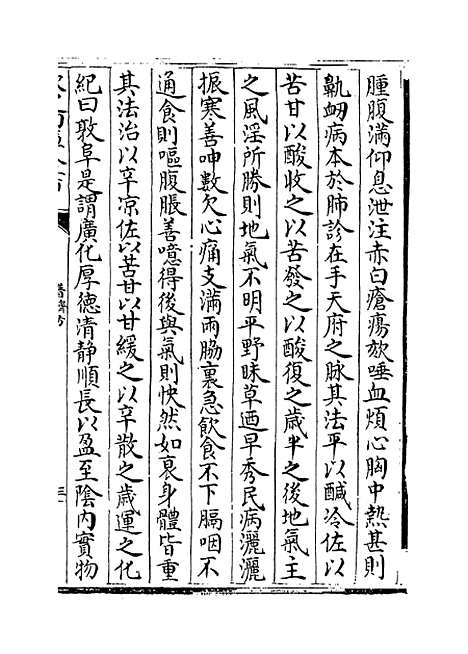 腫腹滿仰息泄注赤白瘡瘍欬唾血煩心胸中熱甚則
鼽衂病本於肺診在手天府之脉其法平以醎冷佐以
苦甘以酸收之以苦發之以酸復之歲半之後地氣主
之風淫所勝則地氣不明平野昧草迺早秀民病灑灑
振寒善呻數欠心痛支滿兩脇裏急飲食不下膈咽不
通食則嘔腹脹善噫得後與氣則快然如衰身體皆重
其法治以辛凉佐以苦甘以甘緩之以辛散之歲運之化
紀曰敦阜是謂廣化厚德清静順長以盈至陰内實物
普濟方